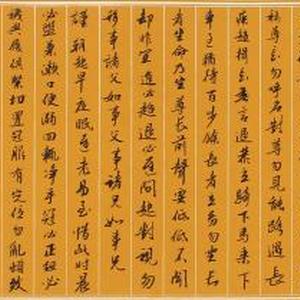 稱尊長勿呼名對尊長勿見能路遇長
疾趨揖長無言退恭立騎下馬乘下
車過猶待百步餘長者立幼勿坐長
者坐命乃坐尊長前聲要低低不聞
卻非宜進必趨退必遲問起對視勿
移事諸父如事父事諸兄如事兄
謹朝起早夜眠遲老易至惜此時晨
必盥兼漱口便溺回輒淨手冠必正紐必
結襪與履俱緊切置冠服有定位勿亂頓致